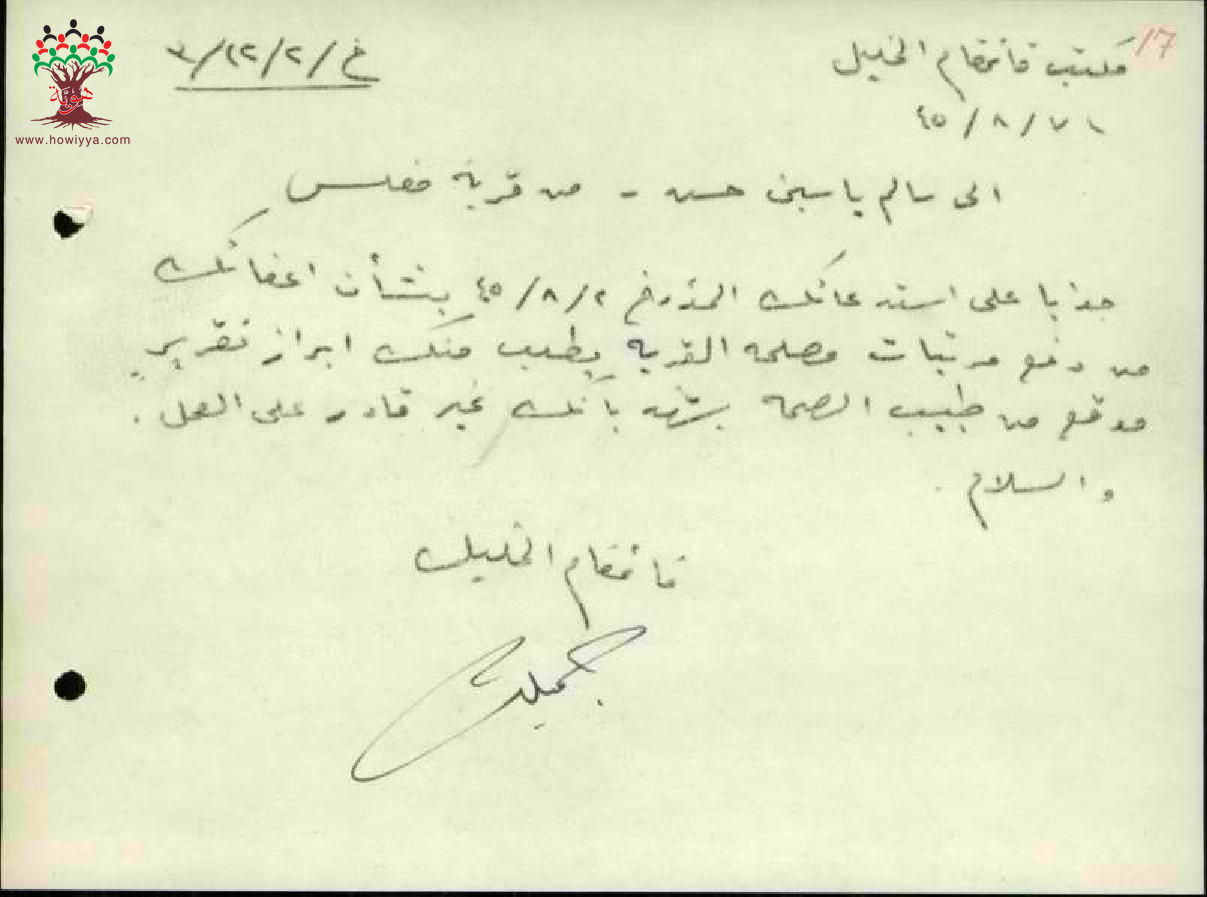 17
مكتب قائمقام الخليل
خ/٢/١٢/٣
٤٥/٨/٧١
هوية
www.howiyya.com
الى سالم ياسين حسن - من قرية مغلس
جوابا على استدعائك المؤرخ ٤٥/٨/٢ بشأن اعفائك
من دفع مرتبات مصلحة القرية يطلب منك ابراز تقرير
موقع من طبيب الصحة يشهد بأنك غير قادر على العمل .
والسلام .
قائمقام الخليل